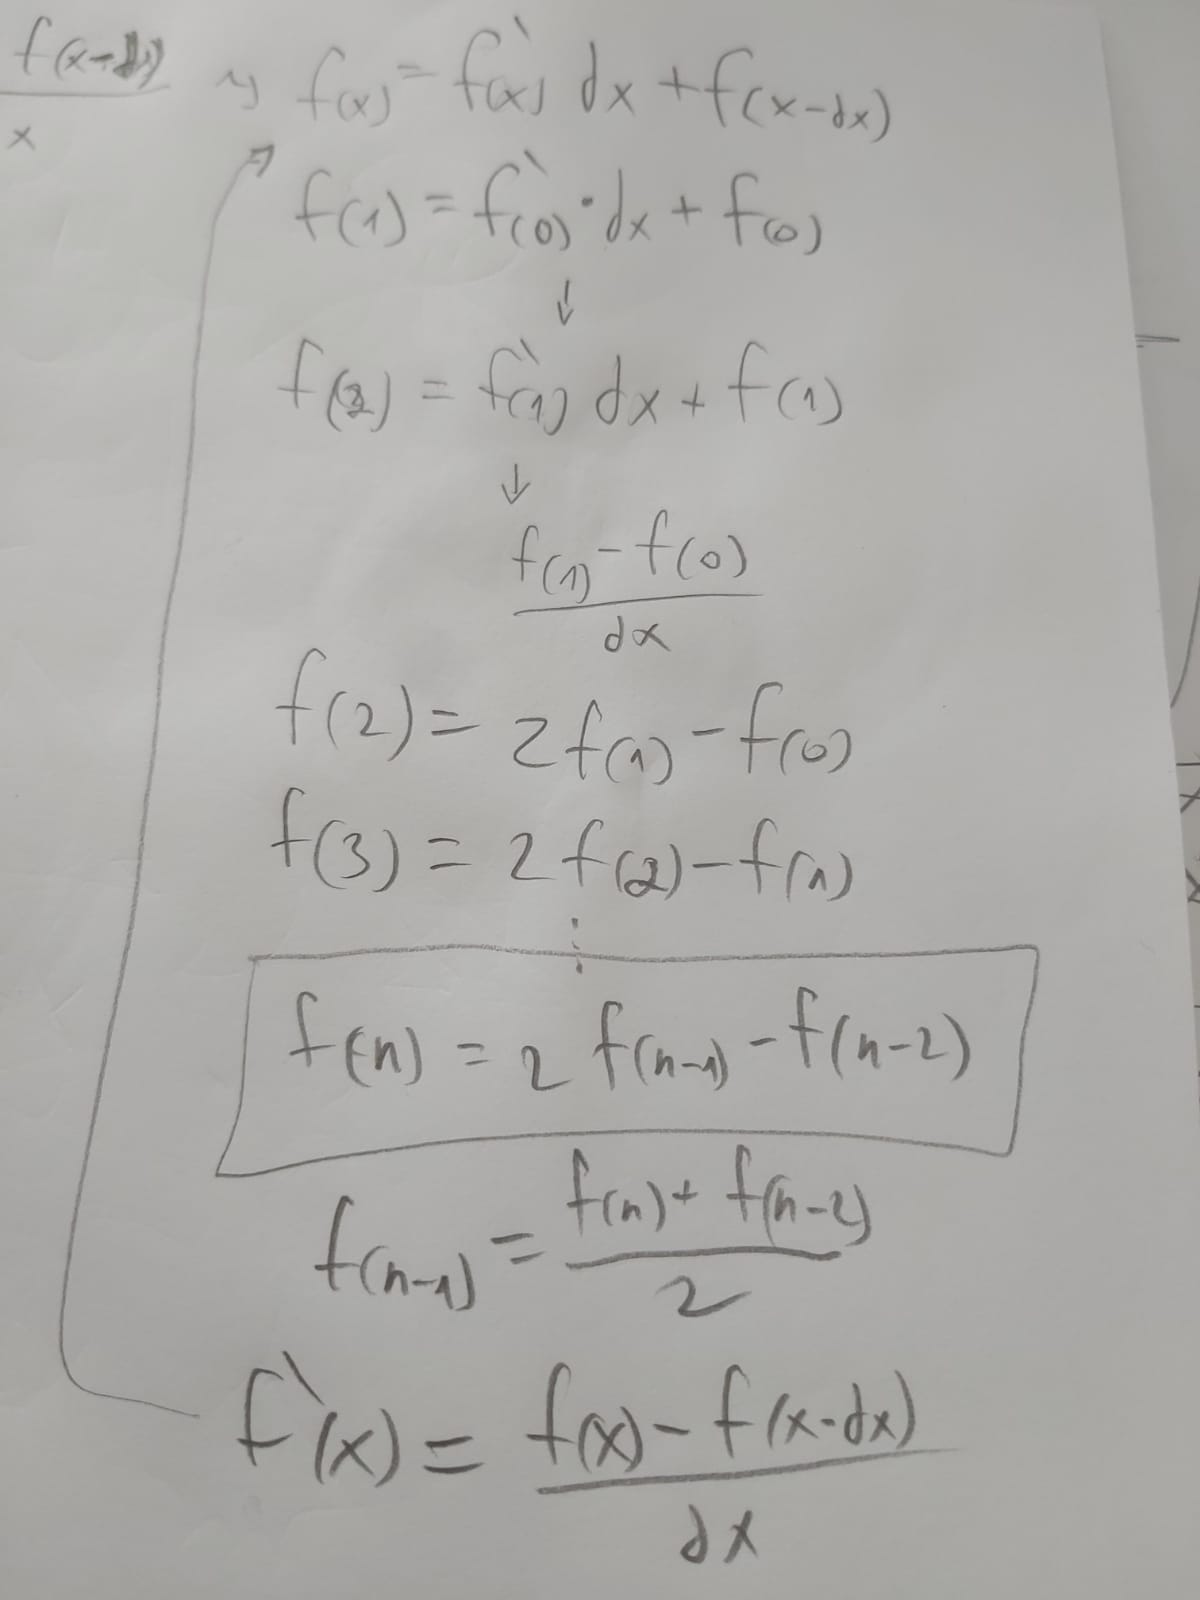 f(x-dx)
x
f(x) = f`(x) dx + f(x-dx)
f(1) = f`(0) · dx + f(0)
↓
f(2) = f`(1) dx + f(1)
↓
f(1) - f(0)
dx
f(2) = 2f(1) - f(0)
f(3) = 2f(2) - f(1)
⋮
f(n) = 2 f(n-1) - f(n-2)
f(n-1) = f(n) + f(n-2)
2
f`(x) = f(x) - f(x-dx)
dx